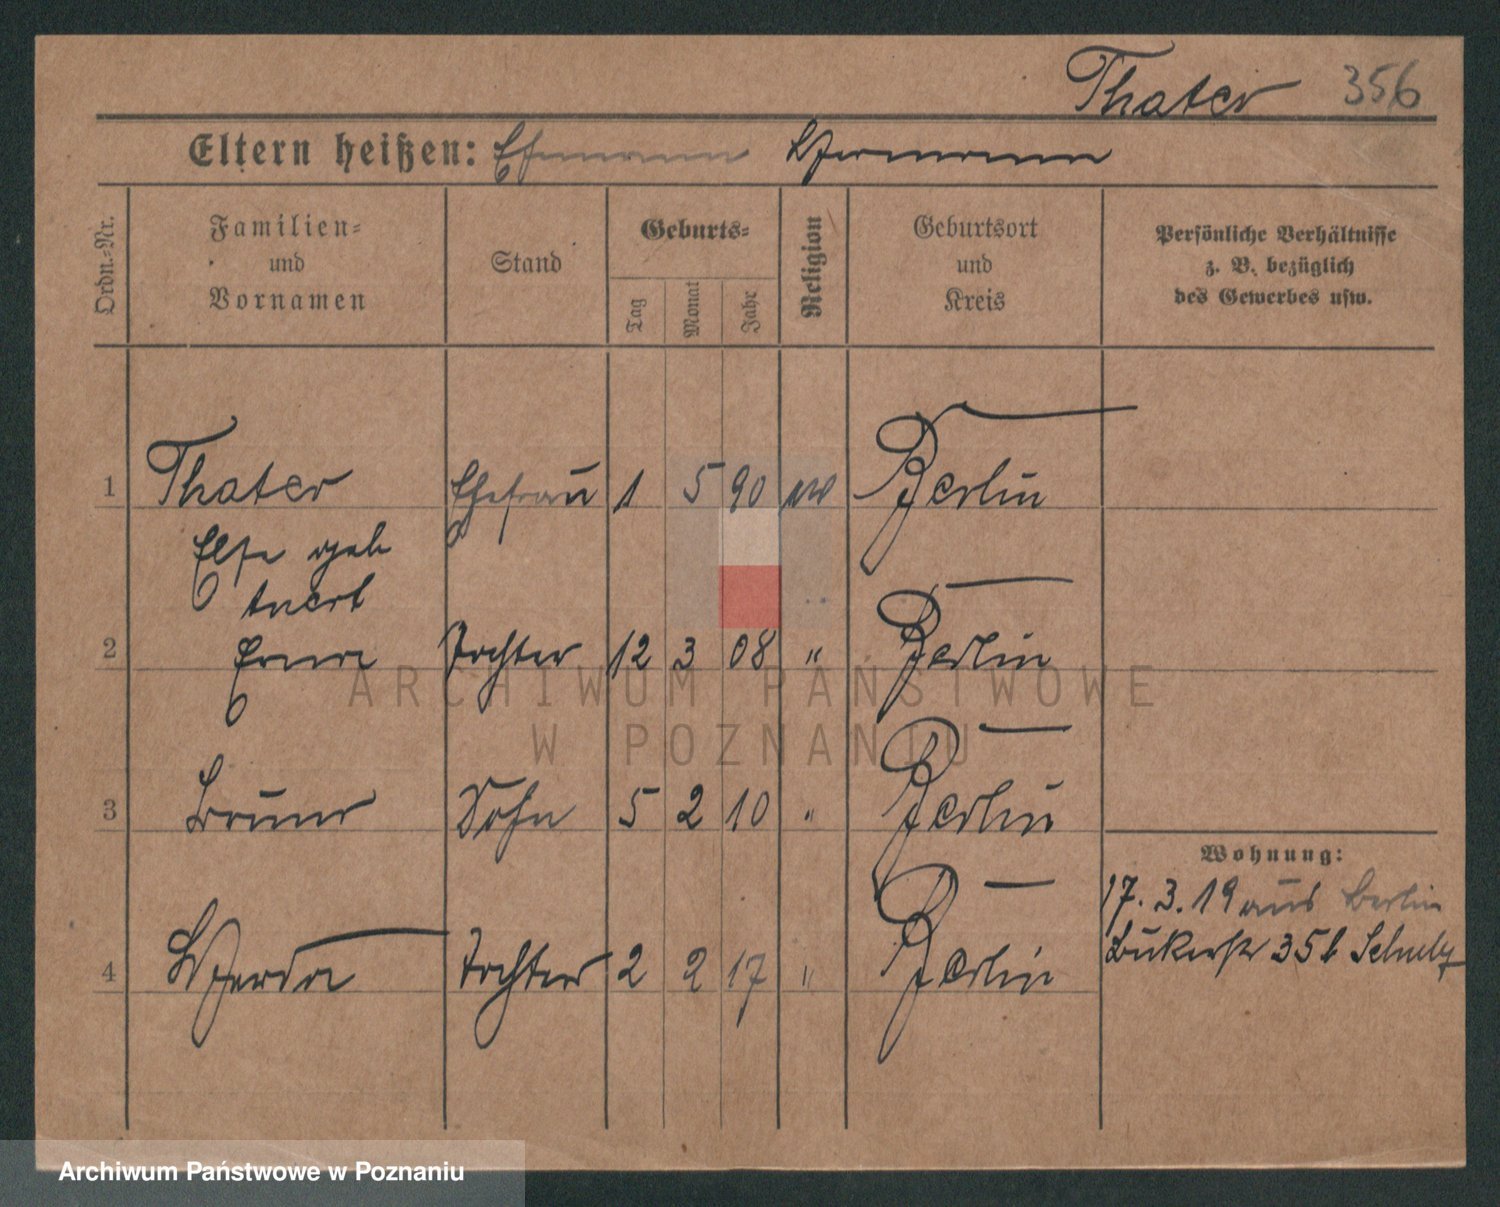 Thater 356
Eltern heißen: Ehemann Hermann
Ordn.-Nr.
Familien-
und
Vornamen
Stand
Geburts-
Tag
Monat
Jahr
Religion
Geburtsort
und
Kreis
Persönliche Verhältnisse
z. B. bezüglich
des Gewerbes usw.
1 Thater Ehefrau 1 5 90 Berlin
Else geb
2 Erna Tochter 12 3 08 " Berlin
3 Bruno Sohn 5 2 10 " Berlin
Wohnung:
17. 3. 19 aus Berlin
Bukerstr 35 b Schulz
4 Herda Tochter 2 2 17 " Berlin
ARCHIWUM PAŃSTWOWE
W POZNANIU
Archiwum Państwowe w Poznaniu